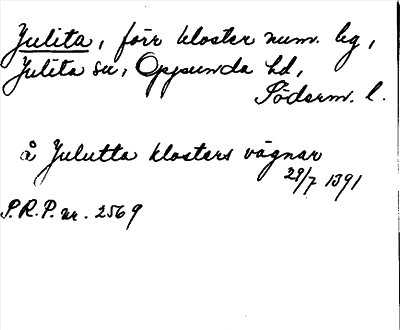 Julita, förr kloster num. lg,
Julita sn, Oppunda hd,
Söderm. l.
å Julutta klosters vägnar
29/7 1391
S.R.P. nr. 2569